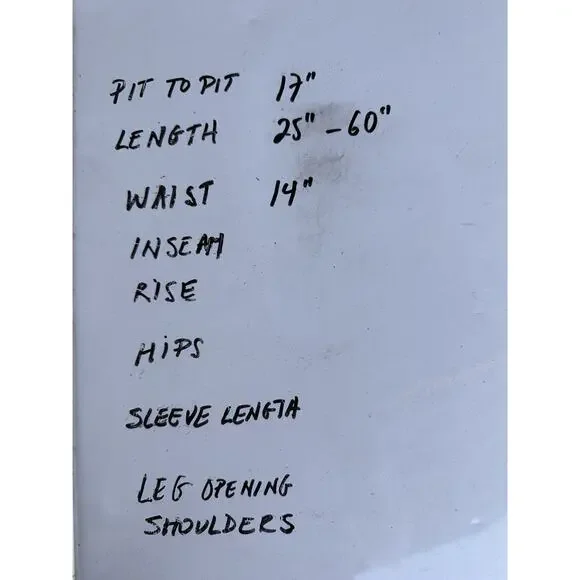 PIT TO PIT 17"
LENGTH 25" - 60"
WAIST 14"
INSEAM
RISE
HiPS
SLEEVE LENGTH
LEG OPENING
SHOULDERS